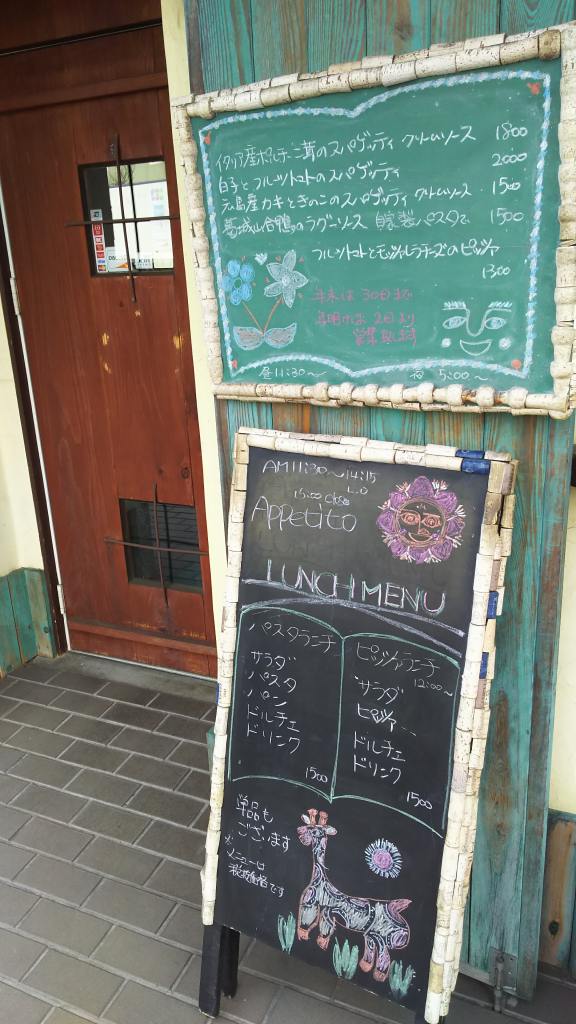 イタリア産ポルチーニ茸のスパゲッティ クリームソース 1800
白子とフルーツトマトのスパゲッティ 2000
広島産カキときのこのスパゲッティ クリームソース 1500
葛城山合鴨のラグーソース 自家製パスタで 1500
フルーツトマトとモッツァレラチーズのピッツァ
1300
年末は 30日まで
年明けは 2日より
営業致します
昼11:30〜 夜 5:00〜
AM11:30〜14:15
L.O
15:00 close
Appetito
LUNCH MENU
パスタランチ
サラダ
パスタ
パン
ドルチェ
ドリンク
1500
ピッツァランチ
12:00〜
サラダ
ピッツァ
ドルチェ
ドリンク
1500
単品も
ございます
メニューは
税抜価格です